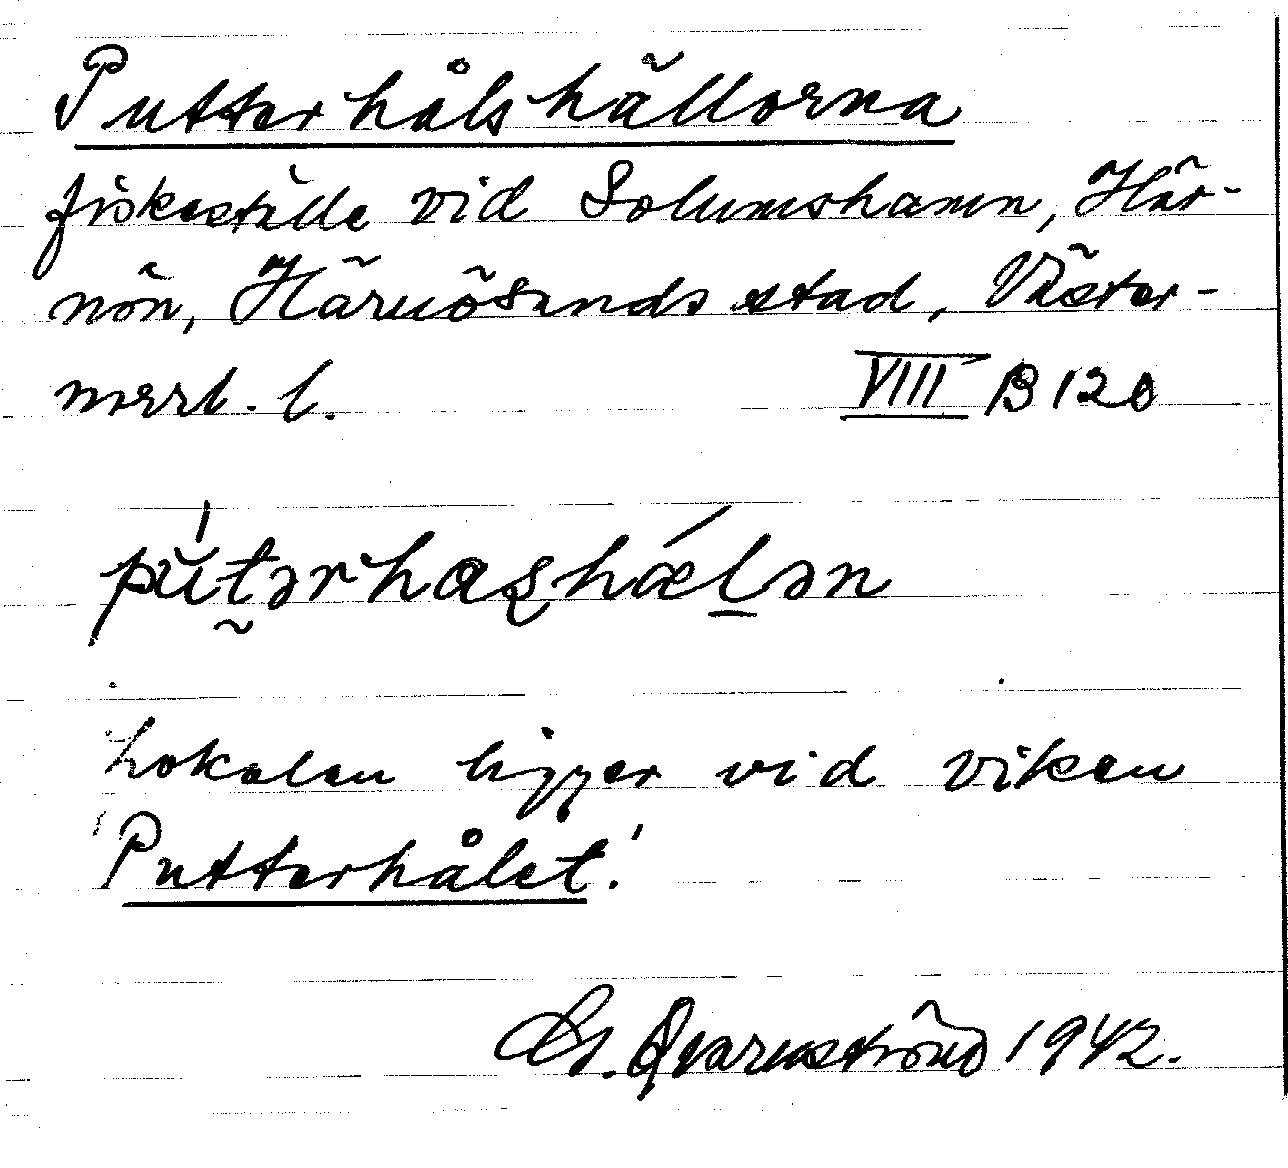 Putterhålshällorna
fiskeställe vid Solumshamn, Här-
nön, Härnösands stad, Väster-
norrl. l. VIII B 120
Lokalen ligger vid viken
'Putterhålet.'
Qvarnström 1942.